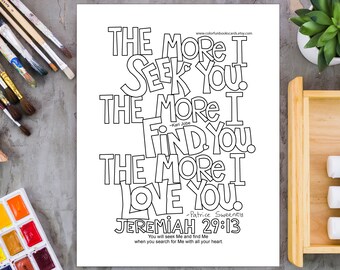 www.colorfunbookscards.etsy.com
THE MORE I
SEEK YOU.
THE MORE I
-Kari Jobe
FIND YOU.
THE MORE I
LOVE YOU.
-Patrice Sweeney
JEREMIAH 29:13
You will seek Me and find Me
when you search for Me with all your heart